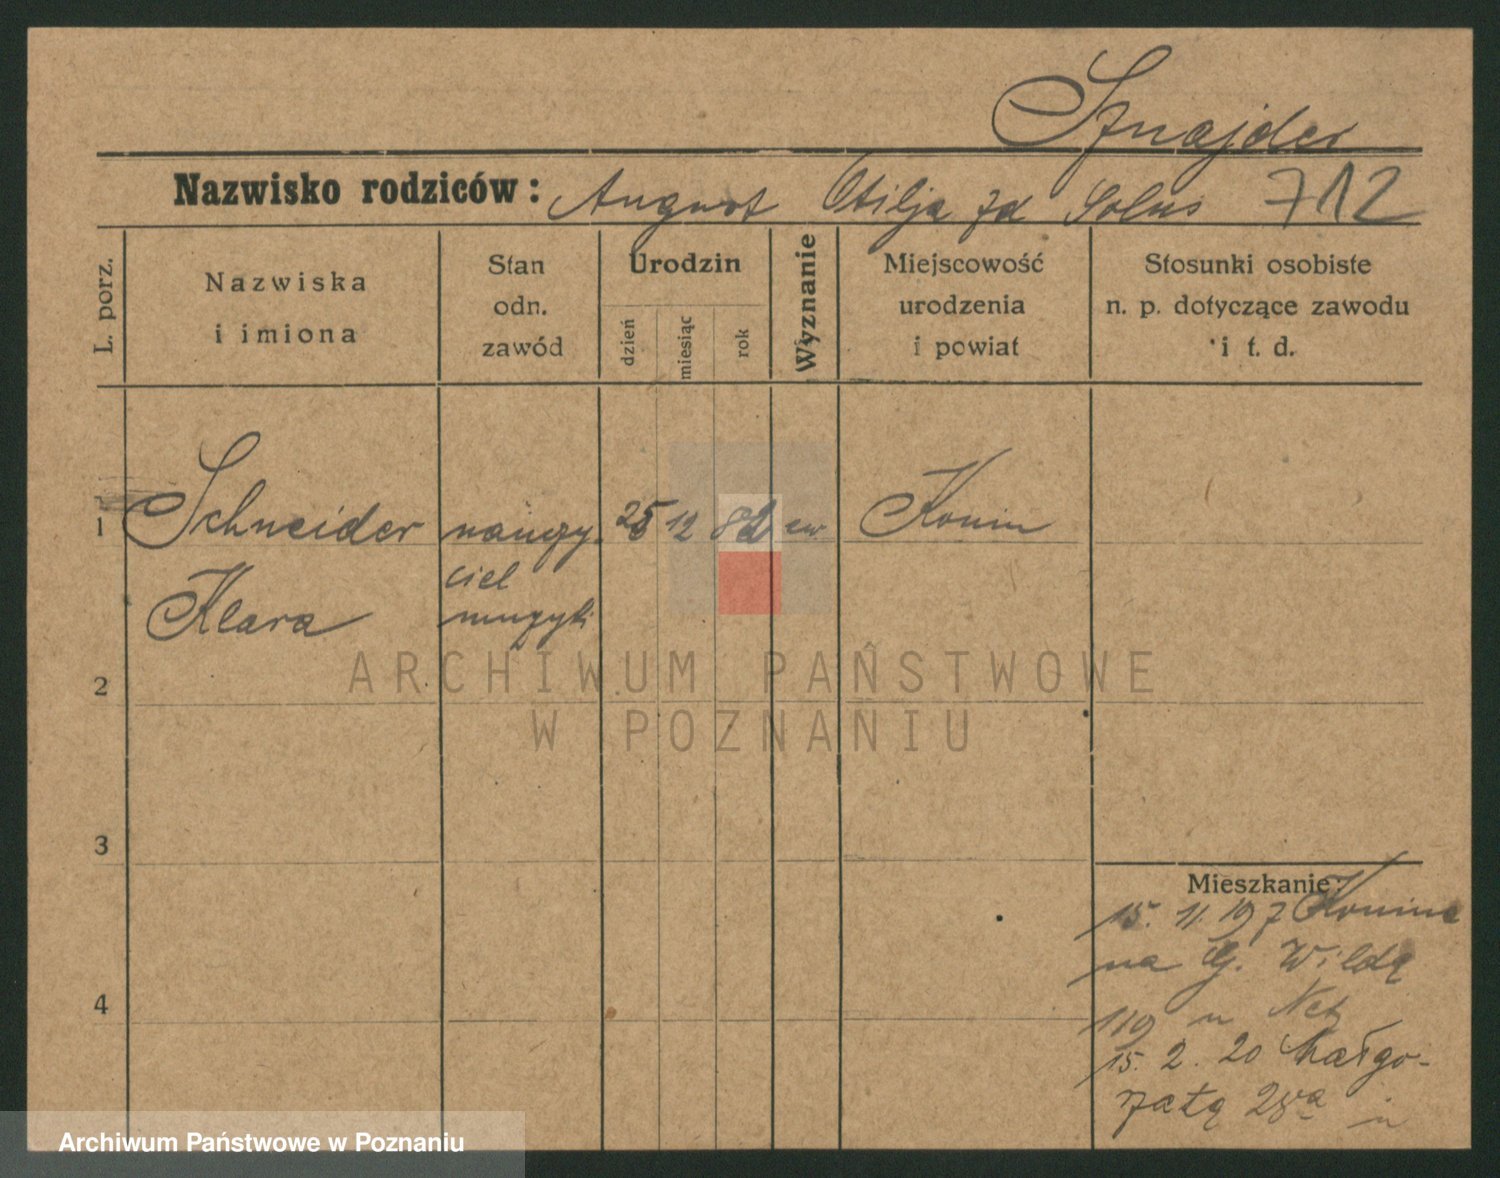 Sznajder
Nazwisko rodziców: August Otilja zd Solus 712
L. porz.
Nazwiska
i imiona
Stan
odn.
zawód
Urodzin
dzień
miesiąc
rok
Wyznanie
Miejscowość
urodzenia
i powiat
Stosunki osobiste
n. p. dotyczące zawodu
i t. d.
1 Schneider nauczy. 25 12 82 ew Konin
ciel
Klara muzyki
2
ARCHIWUM PAŃSTWOWE
W POZNANIU
3
Mieszkanie:
15. 11. 19 z Konina
na G. Wildą
119 u
15. 2. 20 Małgo-
rzatą 28a
4
Archiwum Państwowe w Poznaniu